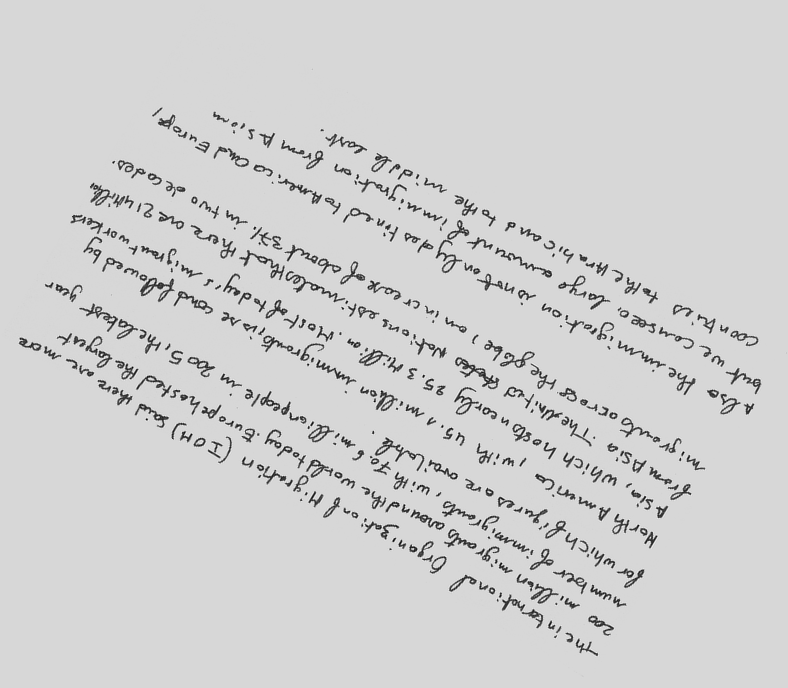 The international Organization of Migration (IOM) said there are more
200 million migrants around the world today. Europe hosted the largest
number of immigrants, with 70.6 million people in 2005, the latest year
for which figures are available.
North America, with 45.1 million immigrants, is second followed by
Asia, which hosts nearly 25.3 Million. Most of today's migrant workers
from Asia. The United Nations estimates that there are 214 Million
migrants across the globe, an increase of about 37% in two decades.
Also the immigration is not only destined to America and Europe,
but we can see a large amount of immigration from Asian
contries to the Arabic and to the middle east.